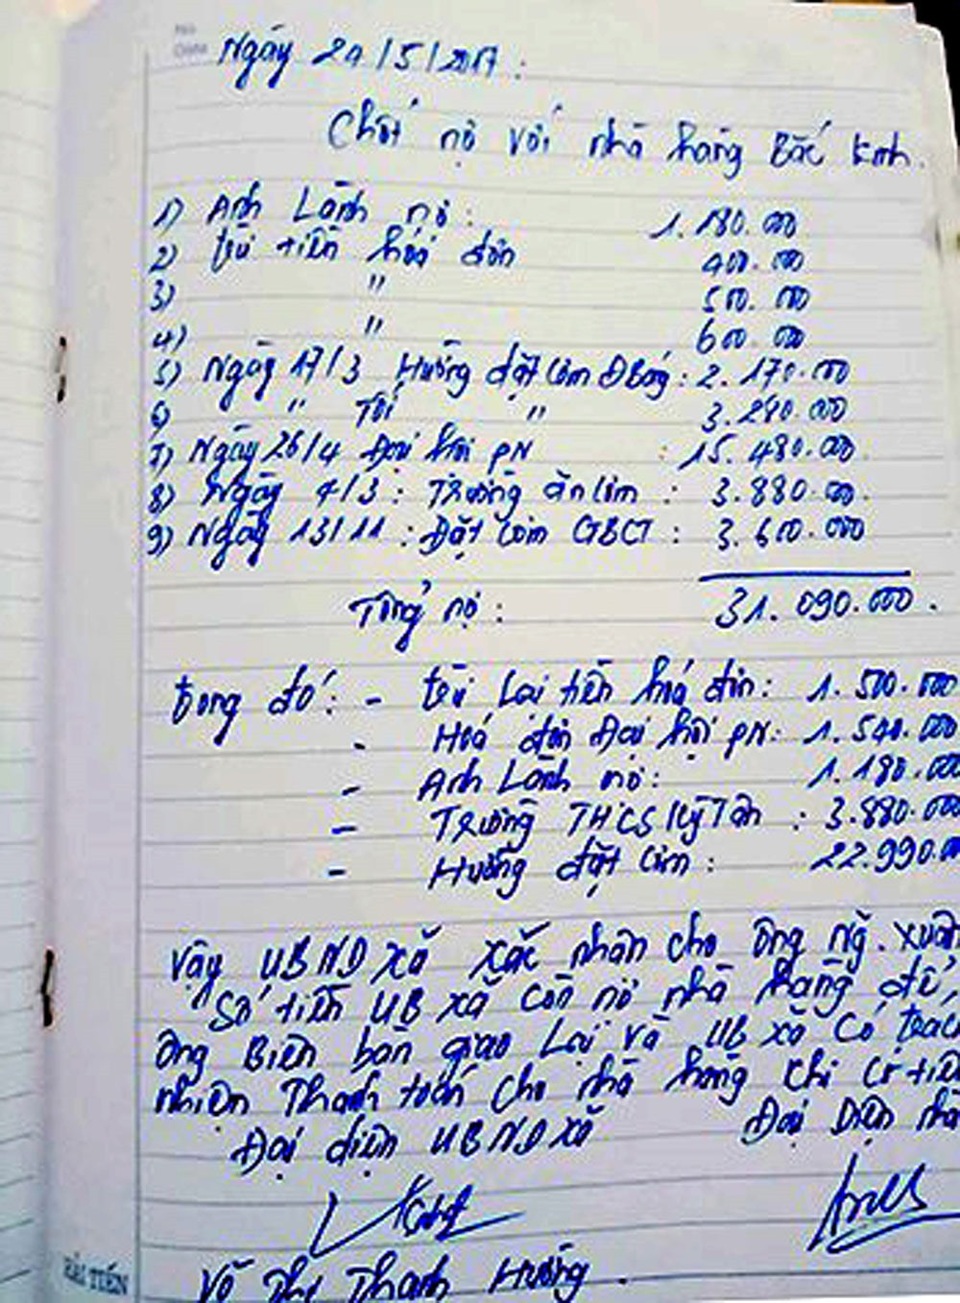 Ngày 24/5/2017:
Chốt nợ với nhà hàng Bắc Kinh.
1) Anh Lành nợ: 1.180.000
2) trừ tiền hoá đơn 400.000
3) " 500.000
4) " 600.000
5) Ngày 17/3 Hường đặt cơm Đ Bóng: 2.170.000
6) " Tối " 3.280.000
7) Ngày 26/4 Đại hội PN : 15.480.000
8) Ngày 7/3: Trường ăn cơm : 3.880.000.
9) Ngày 13/11: Đặt cơm GBCT : 3.600.000
Tổng nợ: 31.090.000.
trong đó: - trừ lại tiền hoá đơn: 1.500.000
- Hoá đơn Đại hội PN: 1.540.000
- Anh Lành nợ: 1.180.000
- Trường THCS Kỳ Tân : 3.880.000
- Hường đặt cơm: 22.990.0
Vậy UBND xã xác nhận cho ông Ng. Xuân
Số tiền UB xã còn nợ nhà hàng để,
ông Biên bàn giao lại và UB xã có trác
nhiện Thanh toán cho nhà hàng chi tiê
Đại diện UBND xã Đại Diện nhà
Võ Thị Thanh Hường.
HẢI TIẾN